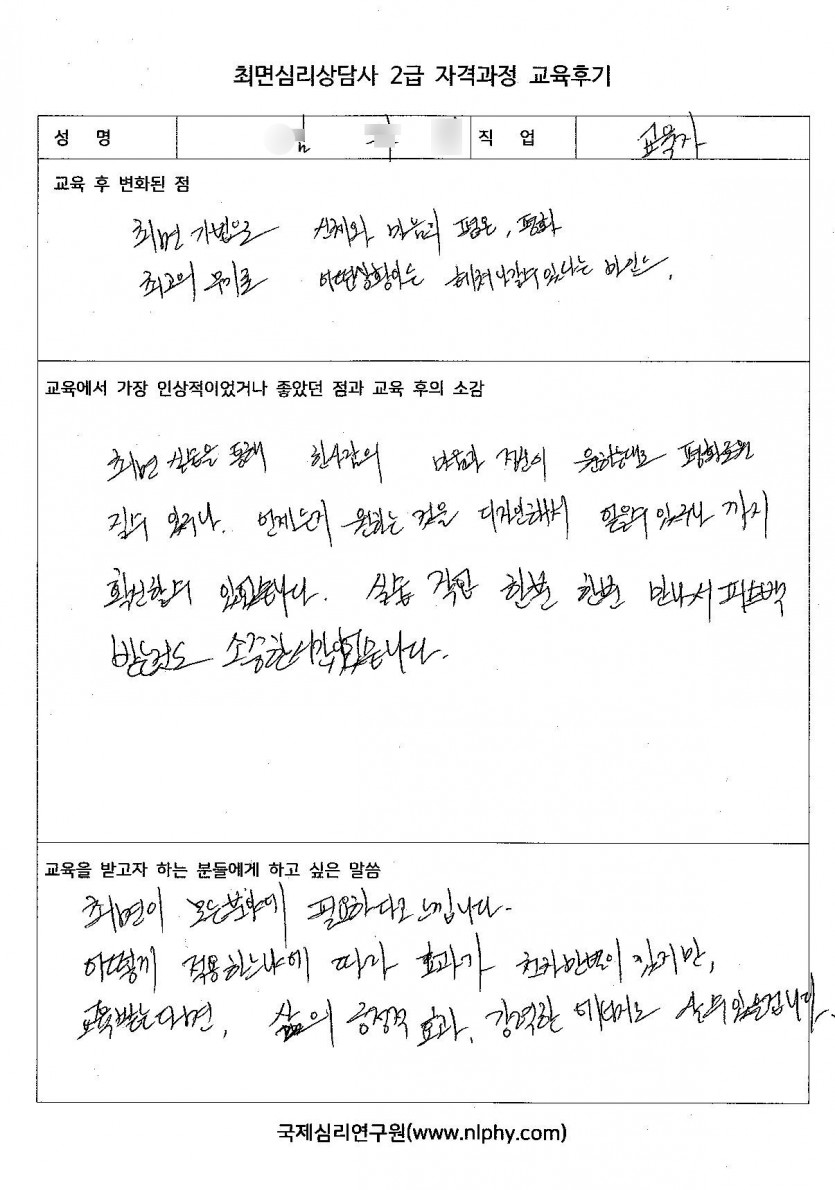 최면심리상담사 2급 자격과정 교육후기
성 명 직 업 교육자
교육 후 변화된 점
최면 기법으로 신체와 마음의 평온, 평화
최고의 무기로 어떤상황이든 헤쳐나갈수있다는 마인드.
교육에서 가장 인상적이었거나 좋았던 점과 교육 후의 소감
최면 실습을 통해 한사람의 마음과 정신이 원하는대로 평화로워
질수 있구나. 언제든지 원하는 것을 디자인해서 얻을수 있구나 까지
확신할수 있었습니다. 실습 작업 한번 한번 만나서 피드백
받는것도 소중한시간이었습니다.
교육을 받고자 하는 분들에게 하고 싶은 말씀
최면이 모든분야에 필요하다고 느낍니다.
어떻게 적용하느냐에 따라 효과가 천차만별이 있지만,
교육받는다면, 삶의 긍정적 효과, 강력한 에너지로 살수있을겁니다.
국제심리연구원(www.nlphy.com)